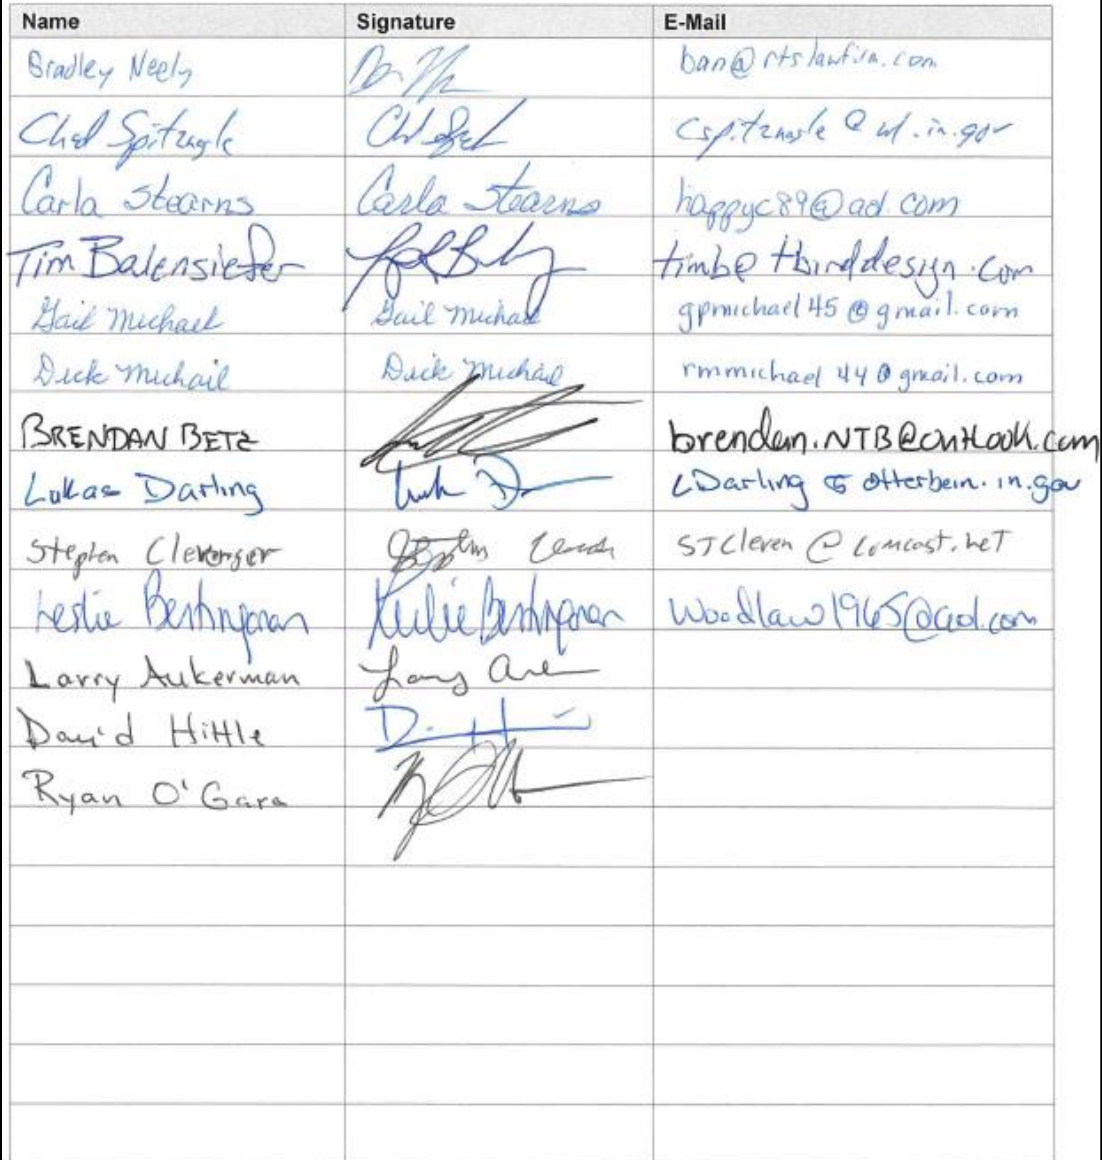 Name Signature E-Mail
Bradley Neely ban@rtslawfirm.com
Chad Spitznagle cspitznagle@wl.in.gov
Carla Stearns Carla Stearns happyc89@aol.com
Tim Balensiefer timb@tbirddesign.com
Gail Michael Gail Michael gpmichael45@gmail.com
Dick Michail Dick Michail rmmichael44@gmail.com
BRENDAN BETZ brendan.NTB@outlook.com
Lukas Darling LDarling@otterbein.in.gov
Stephen Clevenger STCleven@comcast.net
Leslie Leslie Woodlaw1965@aol.com
Larry Aukerman
David Hittle
Ryan O'Gara